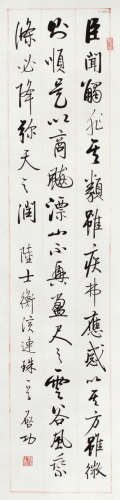 臣聞觸非其類雖疾弗應感以其方雖微
則順是以商飆漂山不興盈尺之雲谷風乘
條必降弥天之潤　陸士衡演連珠一首　啓功